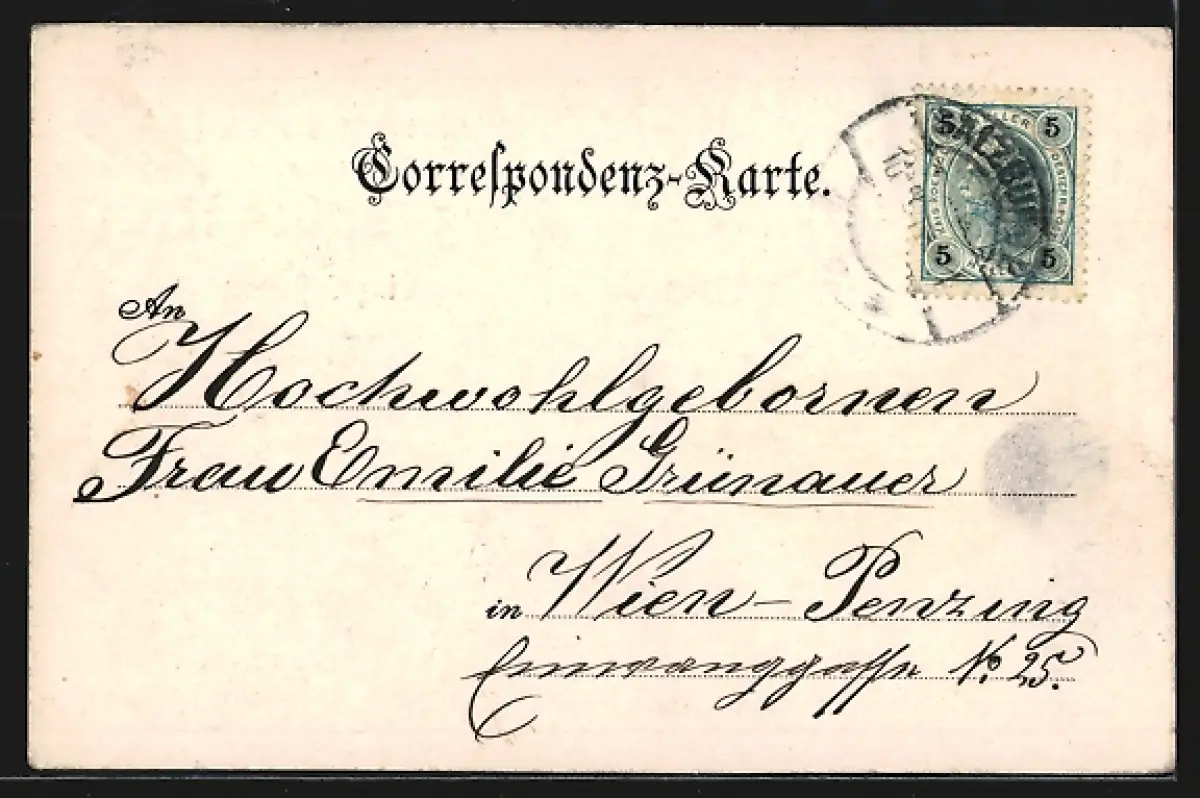 Correspondenz-Karte.
5 HELLER 5
SALZBURG
5 5
An
Hochwohlgebornen
Frau Emilie Grünauer
in Wien-Penzing
Einwanggasse No. 25.